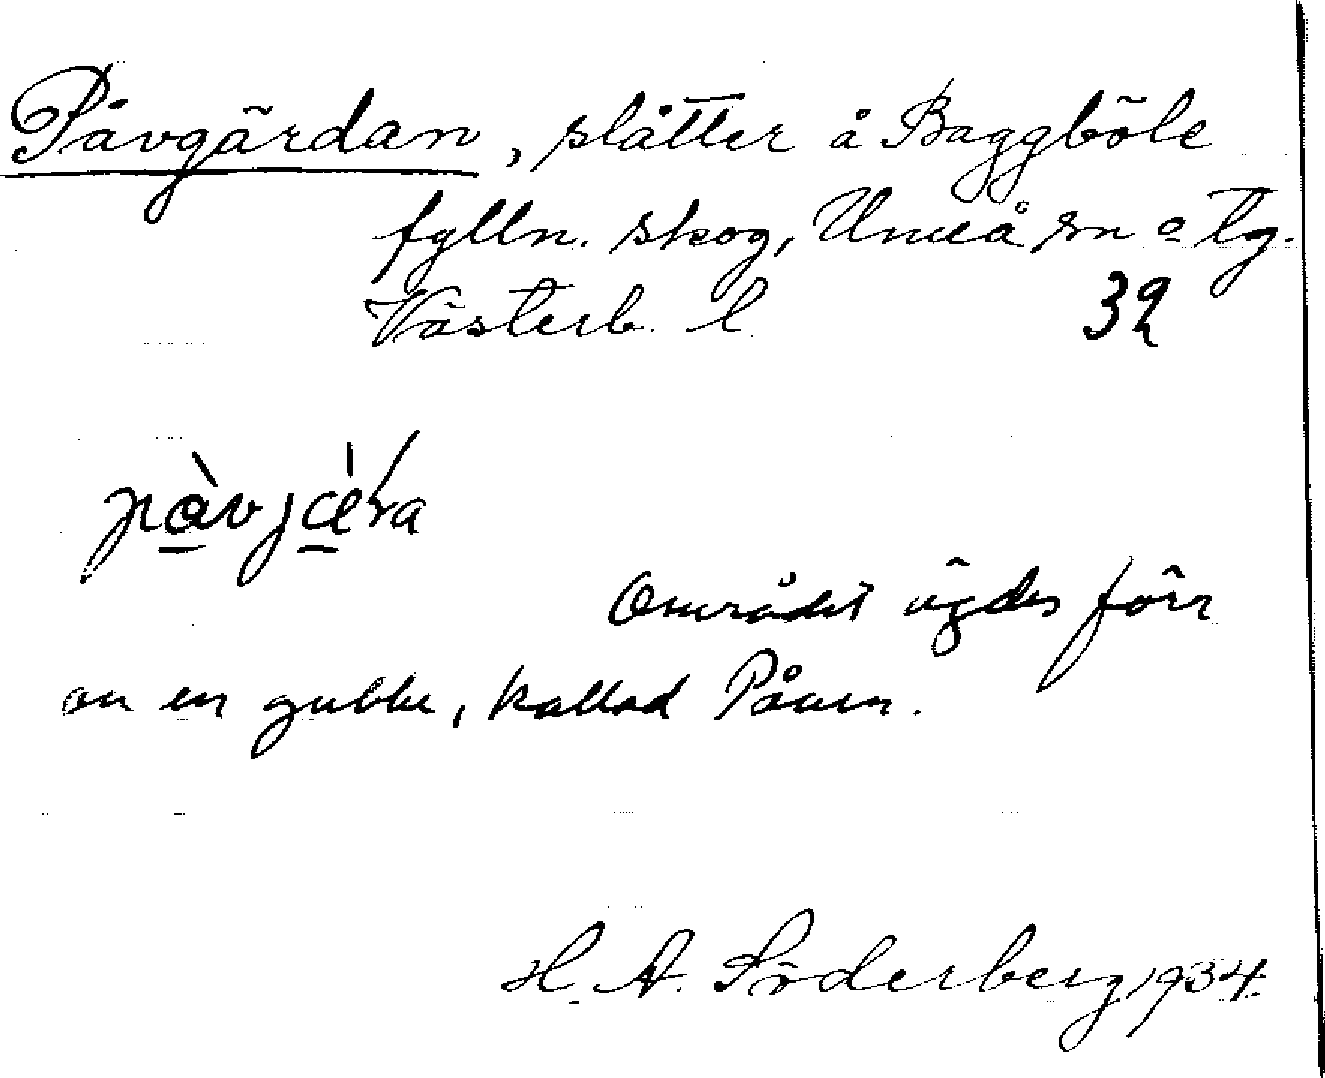 Påvgärdan, slåtter å Baggböle
fylln. skog, Umeå sn o tg.
Västerb. l. 32
pàvjæ̀ra
Området ägdes förr
av en gubbe, kallad Påven.
H. A. Söderberg 1934.